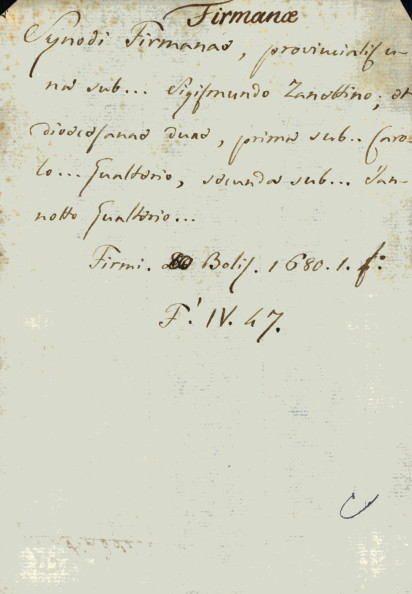 Firmanæ
Synodi Firmanae, provincialis u-
na sub... Sigismundo Zanettino; et
dioecesanae duae, prima sub.. Caro-
lo... Gualterio, secunda sub... Jan-
notto Gualterio...
Firmi. Bolis. 1680. 1. f.º
F.' IV. 47.